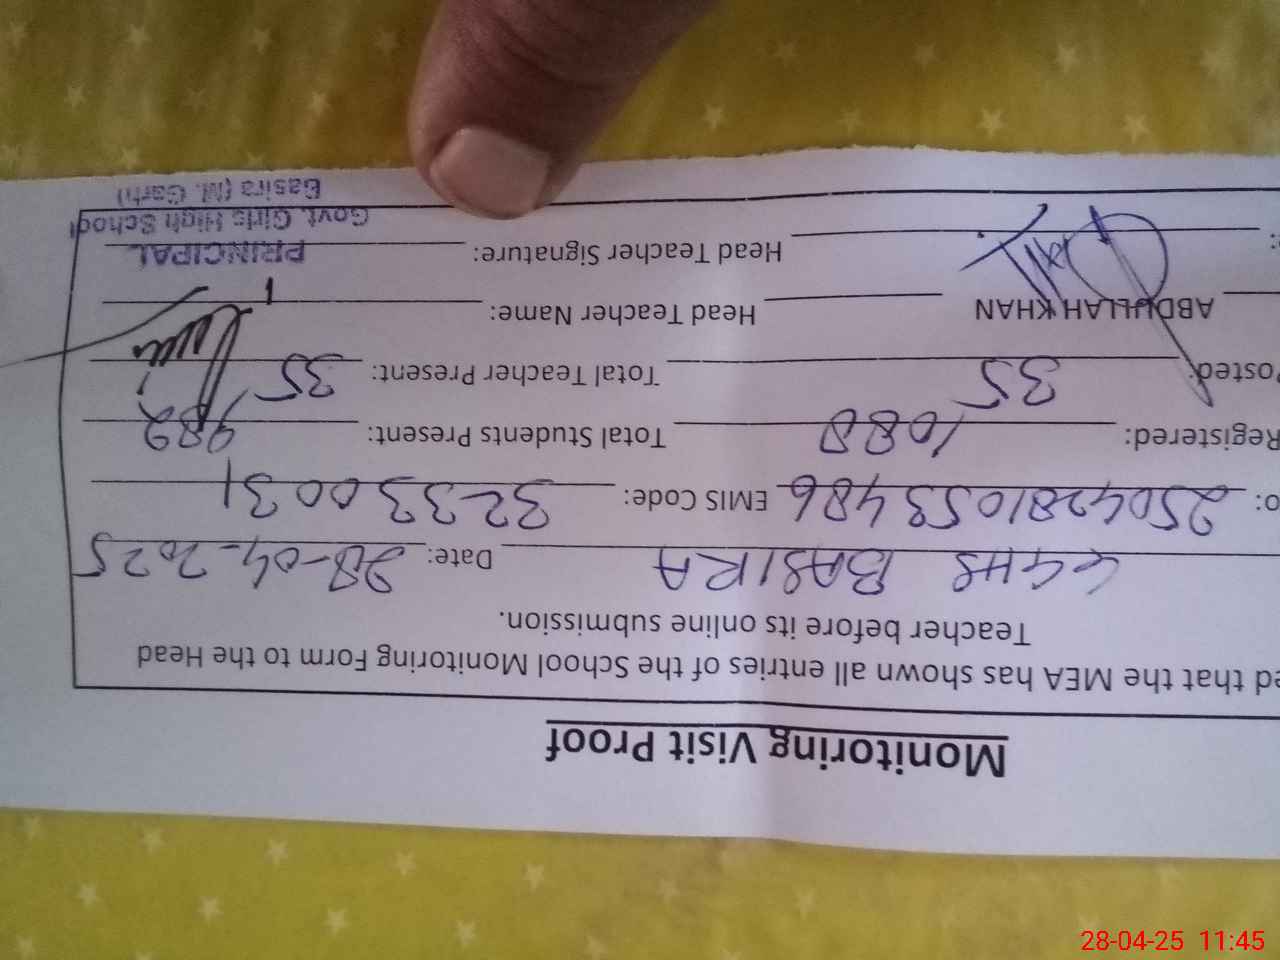 Monitoring Visit Proof
ed that the MEA has shown all entries of the School Monitoring Form to the Head
Teacher before its online submission.
GGHS BASIRA Date: 28-04-2025
o: 2504281053486 EMIS Code: 32330031
Registered: 1088 Total Students Present: 982
Posted: 35 Total Teacher Present: 35
ABDULLAH KHAN Head Teacher Name:
Head Teacher Signature:
PRINCIPAL
Govt. Girls High School
Basira (M. Garh)
28-04-25 11:45